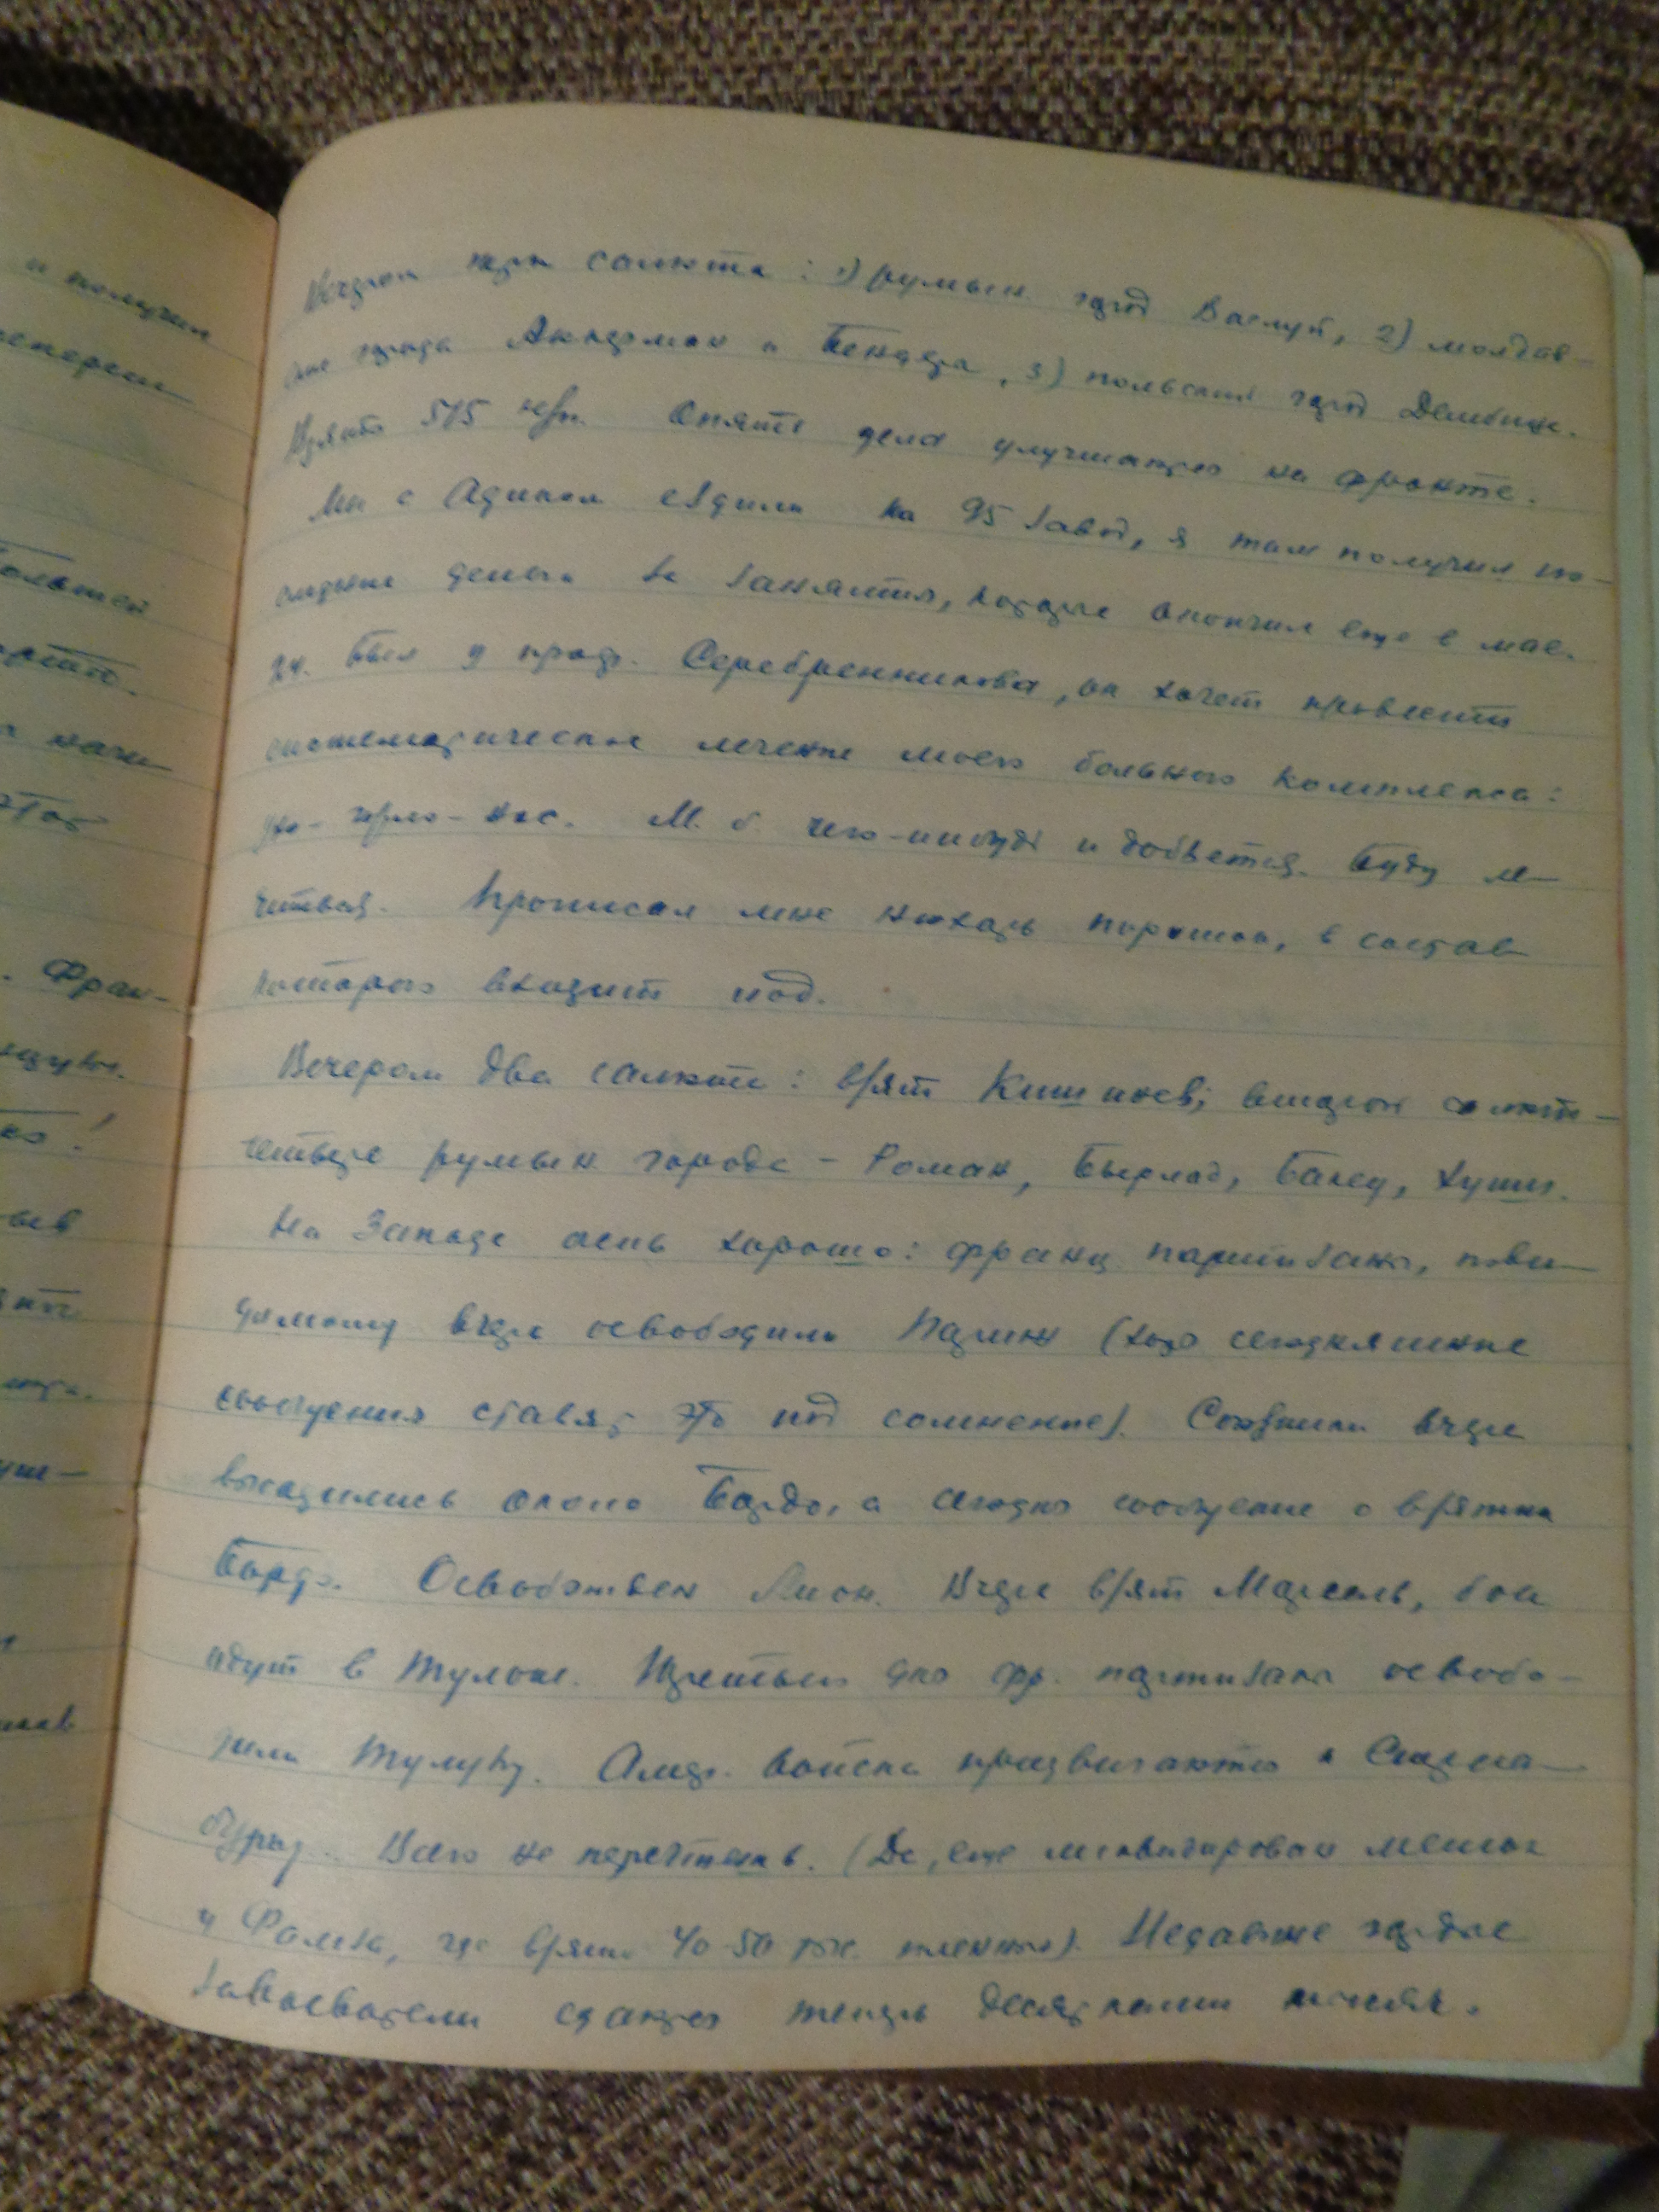 и получил
Фран-
этог
Вечером три салюта: 1) румын. город Васлуй, 2) молдав-
ские города Аккерман и Бендеры, 3) польский город Дембица.
Взято 515 нас. п. Опять дела улучшаются на фронте.
Мы с Адиком ездили на 95 завод, я там получил по-
следние деньги за занятия, которые окончил еще в мае.
24. Был у проф. Серебренникова, он хочет провести
систематическое лечение моего больного комплекса:
ухо-горло-нос. М. б. чего-нибудь и добьется. Буду ле-
читься. Прописал мне нюхать порошок, в состав
которого входит иод.
Вечером два салюта: взят Кишинев; второй салют -
четыре румын. города - Роман, Бырлад, Бакеу, Хуши.
На Западе очень хорошо: франц. партизаны, пови-
димому вчера освободили Париж (хотя сегодняшние
сообщения ставят это под сомнение). Союзники вчера
высадились около Бордо, а сегодня сообщение о взятии
Бордо. Освобожден Лион. Вчера взят Марсель, бои
идут в Тулоне. Третьего дня фр. партизаны освобо-
дили Тулузу. Амер. войска продвигаются к Страсс-
бургу. Всего не перечтешь. (Да, еще ликвидирован мешок
у Фалеза, где взято 40-50 тыс. пленных). Недавние гордые
завоеватели сдаются теперь десятками тысяч.